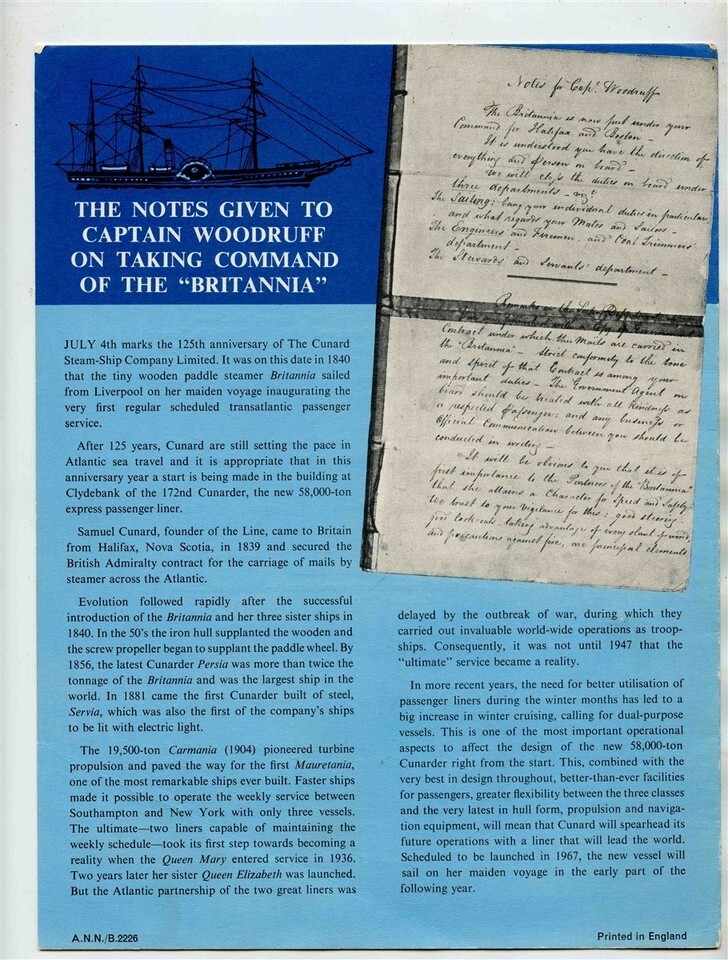 THE NOTES GIVEN TO
CAPTAIN WOODRUFF
ON TAKING COMMAND
OF THE “BRITANNIA”
JULY 4th marks the 125th anniversary of The Cunard
Steam-Ship Company Limited. It was on this date in 1840
that the tiny wooden paddle steamer Britannia sailed
from Liverpool on her maiden voyage inaugurating the
very first regular scheduled transatlantic passenger
service.
After 125 years, Cunard are still setting the pace in
Atlantic sea travel and it is appropriate that in this
anniversary year a start is being made in the building at
Clydebank of the 172nd Cunarder, the new 58,000-ton
express passenger liner.
Samuel Cunard, founder of the Line, came to Britain
from Halifax, Nova Scotia, in 1839 and secured the
British Admiralty contract for the carriage of mails by
steamer across the Atlantic.
Evolution followed rapidly after the successful
introduction of the Britannia and her three sister ships in
1840. In the 50's the iron hull supplanted the wooden and
the screw propeller began to supplant the paddle wheel. By
1856, the latest Cunarder Persia was more than twice the
tonnage of the Britannia and was the largest ship in the
world. In 1881 came the first Cunarder built of steel,
Servia, which was also the first of the company's ships
to be lit with electric light.
The 19,500-ton Carmania (1904) pioneered turbine
propulsion and paved the way for the first Mauretania,
one of the most remarkable ships ever built. Faster ships
made it possible to operate the weekly service between
Southampton and New York with only three vessels.
The ultimate—two liners capable of maintaining the
weekly schedule—took its first step towards becoming a
reality when the Queen Mary entered service in 1936.
Two years later her sister Queen Elizabeth was launched.
But the Atlantic partnership of the two great liners was
Notes for Capt. Woodruff
The Britannia is now put under your
Command for Halifax and Boston –
It is understood you have the direction of
everything and person on board –
We will class the duties on board under
three departments – viz:
The Sailing; being your individual duties in particular
and what regards your Mates and Sailors –
The Engineers and Firemen, and Coal Trimmers'
department –
The Stewards and Servants' department –
Remarks on the
Contract under which the Mails are carried in
the "Britannia" – Strict conformity to the time
and spirit of that Contract is among your
important duties – The Government Agent on
board should be treated with all kindness as
a respected Passenger; and any business or
Official Communication between you should be
conducted in writing –
It will be obvious to you that it is of
first importance to the Partners of the "Britannia"
that she attains a Character for Speed and Safety
We trust to your vigilance for this: good steering,
good look-outs, taking advantage of every slant of wind,
and precautions against fire, are principal elements
delayed by the outbreak of war, during which they
carried out invaluable world-wide operations as troop-
ships. Consequently, it was not until 1947 that the
“ultimate” service became a reality.
In more recent years, the need for better utilisation of
passenger liners during the winter months has led to a
big increase in winter cruising, calling for dual-purpose
vessels. This is one of the most important operational
aspects to affect the design of the new 58,000-ton
Cunarder right from the start. This, combined with the
very best in design throughout, better-than-ever facilities
for passengers, greater flexibility between the three classes
and the very latest in hull form, propulsion and naviga-
tion equipment, will mean that Cunard will spearhead its
future operations with a liner that will lead the world.
Scheduled to be launched in 1967, the new vessel will
sail on her maiden voyage in the early part of the
following year.
A.N.N./B.2226
Printed in England